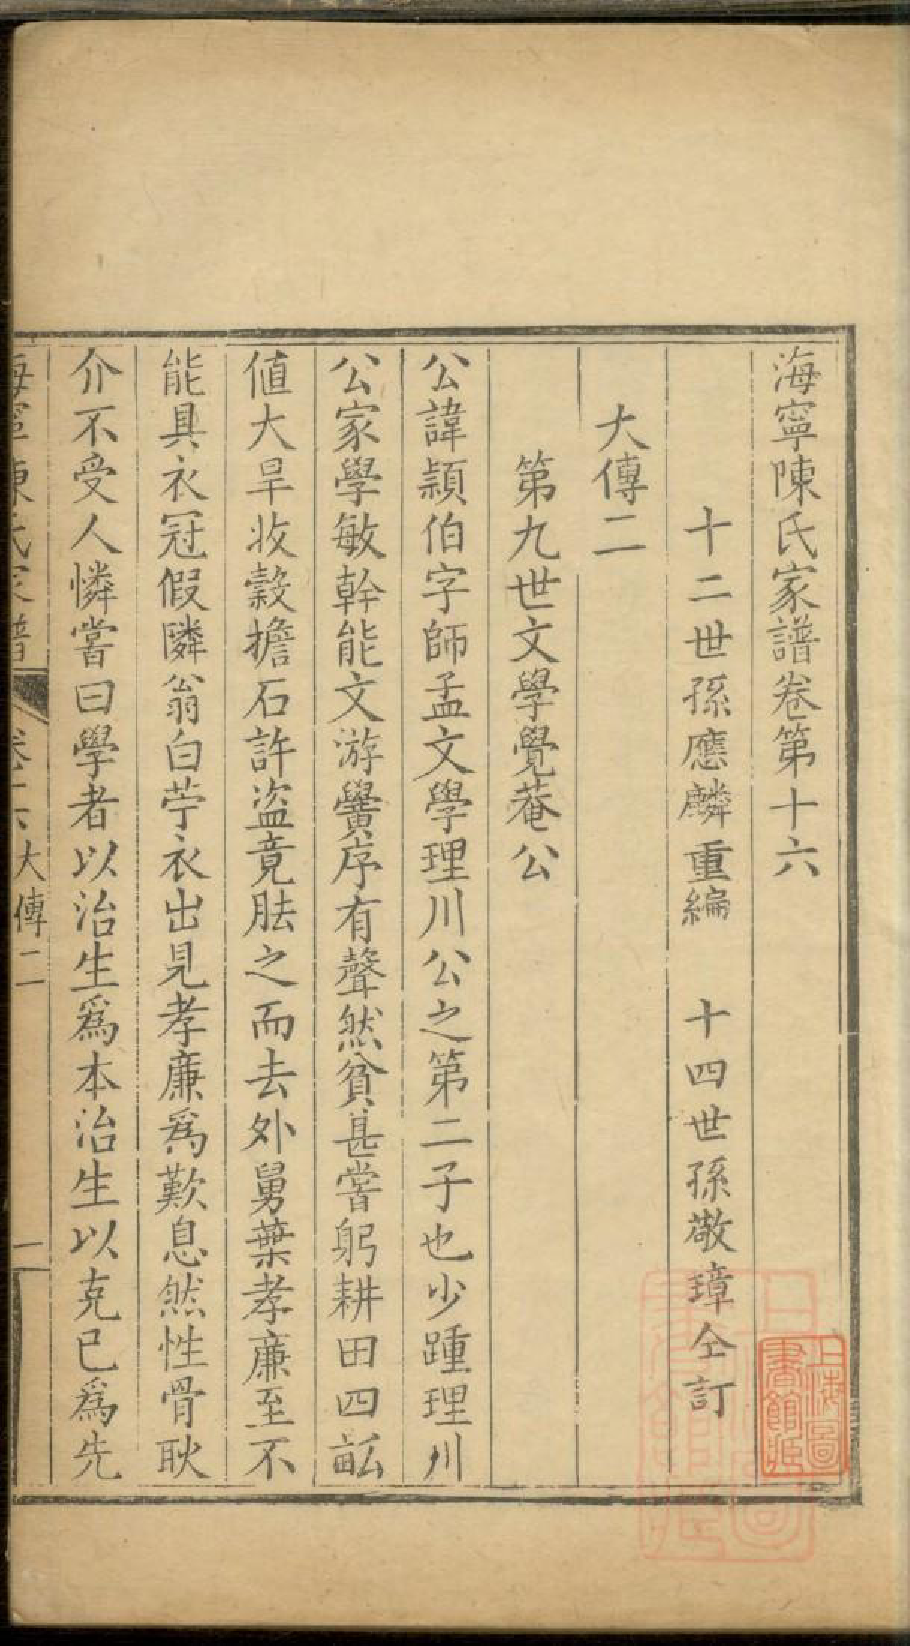 海寧陳氏家譜卷第十六
十二世孫應麟重編　十四世孫敬璋仝訂
大傳二
第九世文學覺菴公
公諱穎伯字師孟文學理川公之第二子也少踵理川
公家學敏幹能文游黌序有聲然貧甚嘗躬耕田四畝
値大旱收穀擔石許盜竟胠之而去外舅葉孝廉至不
能具衣冠假隣翁白苧衣出見孝廉爲歎息然性骨耿
介不受人憐嘗曰學者以治生爲本治生以克己爲先
海寧陳氏家譜　卷十六　大傳二　一
上海圖書館藏